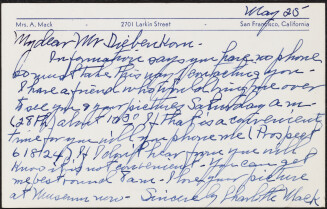 May 25
Mrs. A. Mack 2701 Larkin Street San Francisco, California
My dear Mr Diebenkorn -
Information says you have no phone
so must take this way contacting you -
I have a friend who would bring me over
to see you & your pictures Saturday a.m.
(28th) about 10:30 If that's a convenient
time for you will you phone me (Prospect
6-1824). If I don't hear from you will
know it is not convenient. You can get
me best round 8 am - I love your picture
at Museum now - Sincerely Charlotte Mack